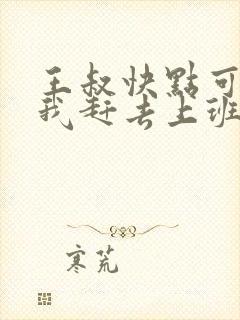 王叔快點可
我赶去上班
寒荒